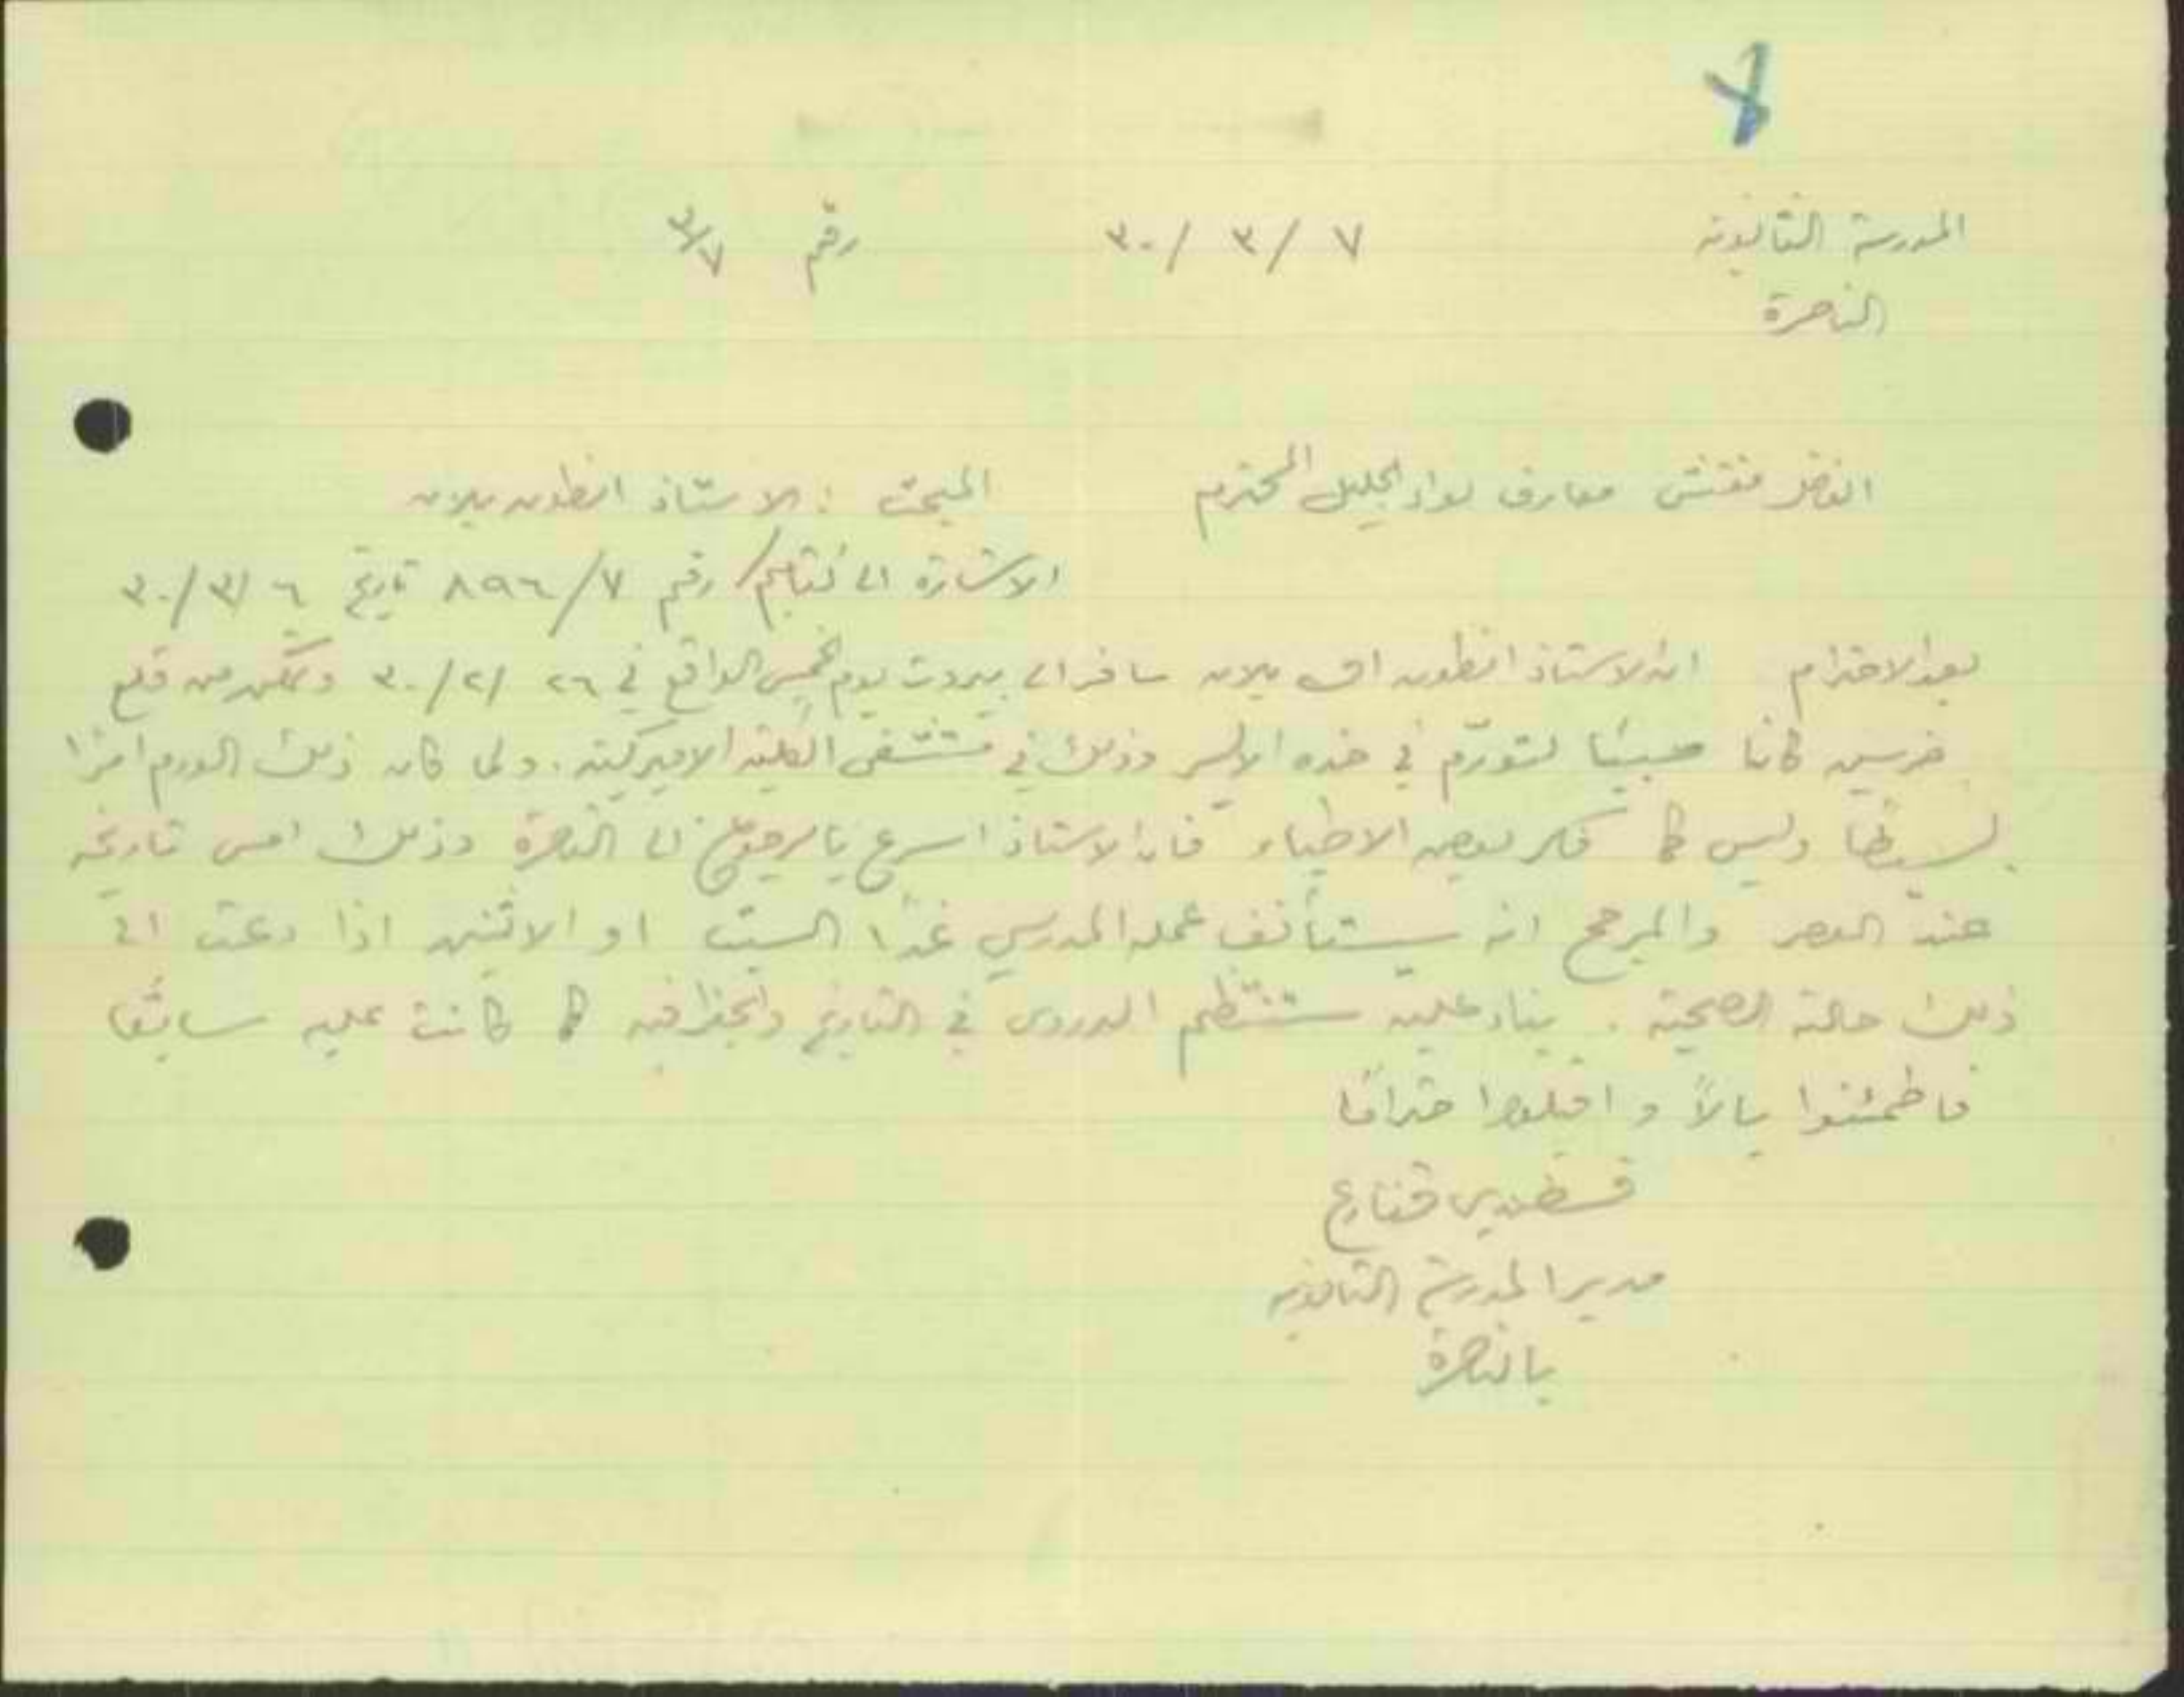 ٧
المدرسة الثانوية ٧ / ٣ / ٣٠ رقم ٣/٧
الناصرة
افضل مفتش معارف لواء الجليل المحترم المبحث : الاستاذ انطون بلان
الاشارة الى كتابكم رقم ٨٩٦/٧ تاريخ ٦ /٣/ ٣٠
بعد الاحترام ان الاستاذ انطون بلان سافر الى بيروت يوم الخميس الواقع في ٢٦ /٢/ ٣٠ وتمكن من قلع
ضرسين كانا سببًا لتورّم في خده الايسر وذلك في مستشفى الكلية الاميركية. ولما كان ذلك الورم امرًا
بسيطًا وليس كما فكر بعض الاطباء فان الاستاذ اسرع بالرجوع الى الناصرة وذلك امس تاريخه
عند العصر والمرجح انه سيستأنف عمله المدرسي غدًا السبت او الاثنين اذا دعت الى
ذلك حالته الصحية . بناء عليه ستنتظم الدروس في التاريخ والجغرافيه كما كانت عليه سابقًا
فاطمئنوا بالاً و اقبلوا احترامًا
قسطندي قنازع
مدير المدرسة الثانوية
بالناصرة